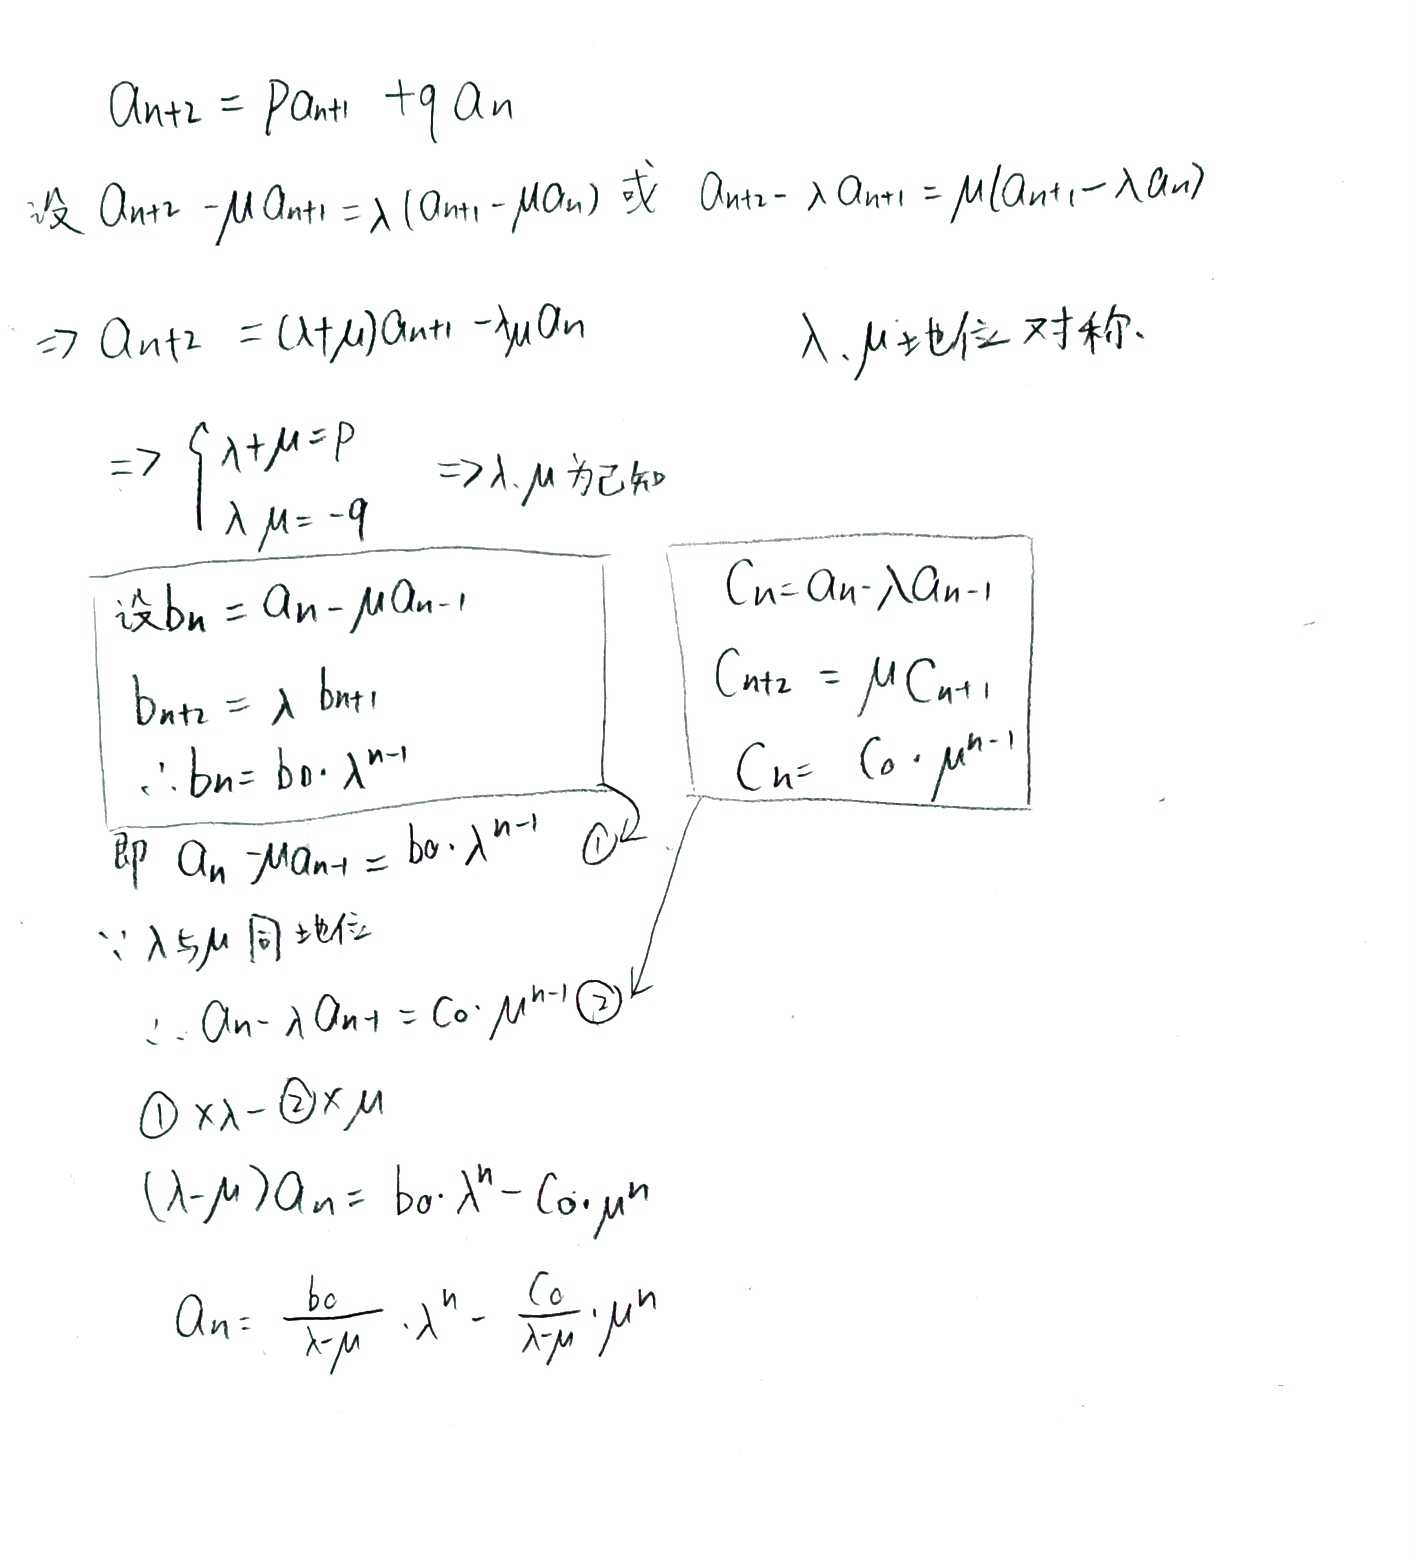 aₙ₊₂ = paₙ₊₁ + qaₙ
设 aₙ₊₂ - μaₙ₊₁ = λ(aₙ₊₁ - μaₙ) 或 aₙ₊₂ - λaₙ₊₁ = μ(aₙ₊₁ - λaₙ)
⇒ aₙ₊₂ = (λ+μ)aₙ₊₁ - λμaₙ λ、μ地位对称.
⇒ { λ+μ = p
λμ = -q ⇒ λ、μ为已知
设bₙ = aₙ - μaₙ₋₁
bₙ₊₂ = λbₙ₊₁
∴ bₙ = b₀·λⁿ⁻¹
Cₙ = aₙ - λaₙ₋₁
Cₙ₊₂ = μCₙ₊₁
Cₙ = C₀·μⁿ⁻¹
即 aₙ - μaₙ₋₁ = b₀·λⁿ⁻¹ ①
∵ λ与μ同地位
∴ aₙ - λaₙ₋₁ = C₀·μⁿ⁻¹ ②
①×λ - ②×μ
(λ-μ)aₙ = b₀·λⁿ - C₀·μⁿ
aₙ = b₀/(λ-μ)·λⁿ - C₀/(λ-μ)·μⁿ